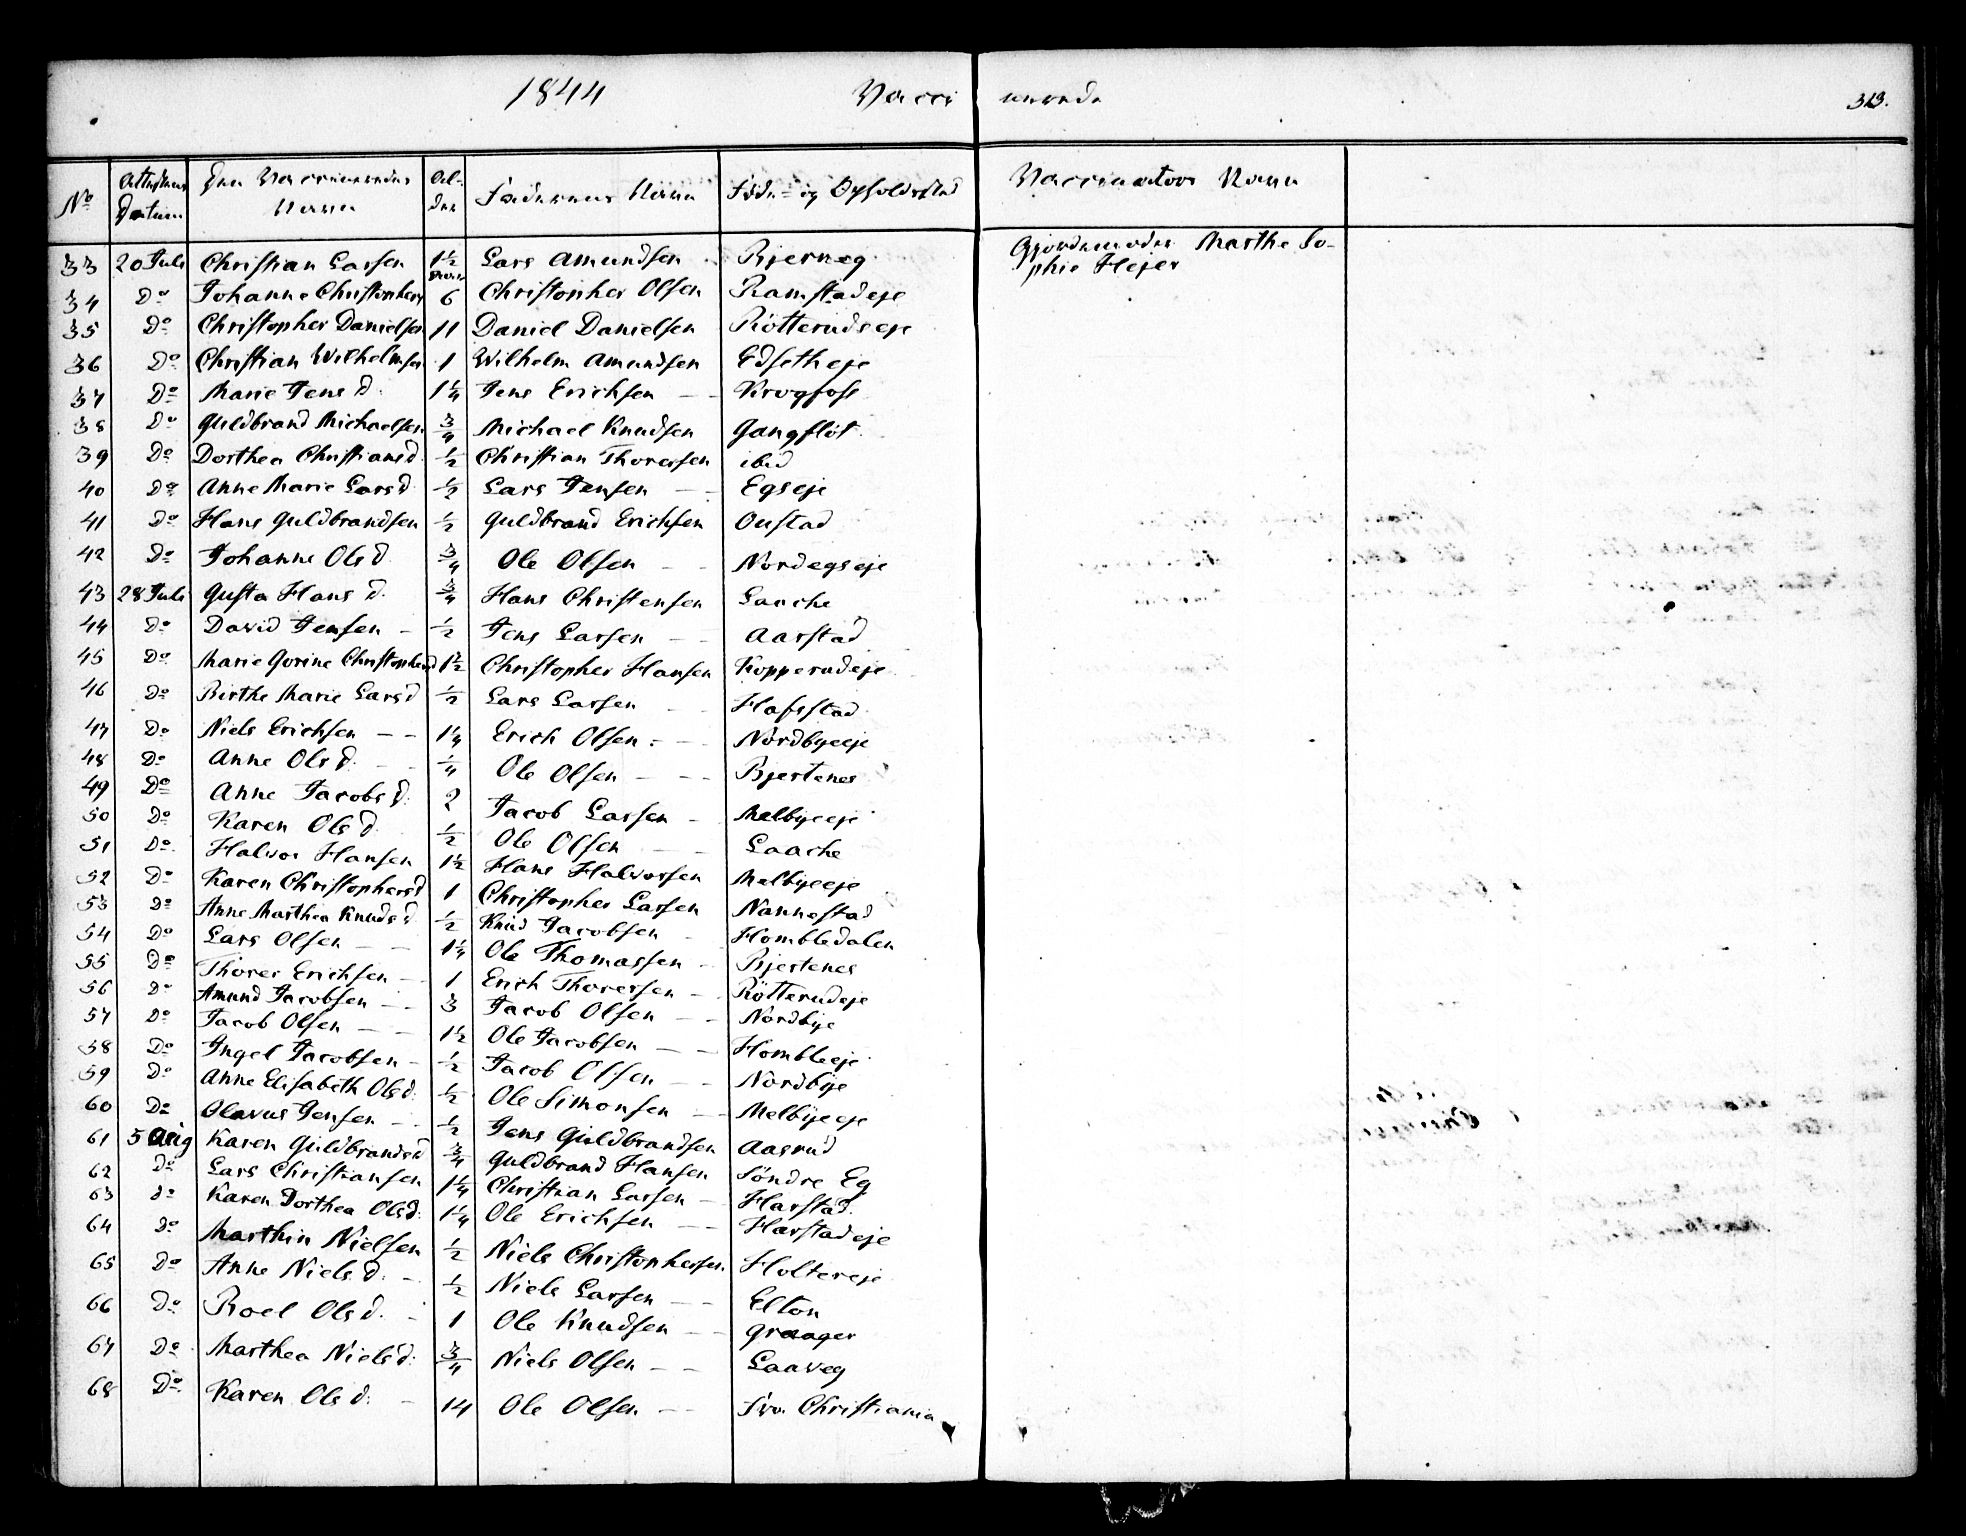 1844 Vaccinerede 313.
No Attestens Datum Den Vaccineredes Navn Alder Faderens Navn Føde- og Opholdssted Vaccinators Navn
33 20 Juli Christian Larsen 1½ Lars Amundsen Bjerneg Gjordemoder Marthe So-
phie Hejer
34 Do Johanne Christophers 6 Christopher Olsen Ramstadeje
35 Do Christopher Danielsen 11 Daniel Danielsen Rötterudseje
36 Do Christian Wilhelmsen 1 Wilhelm Amundsen Edsetheje
37 Do Marie Jensd. 1¼ Jens Erichsen - - Krogfoss
38 Do Guldbrand Michaelsen ¾ Michael Knudsen Gangflöt
39 Do Dorthea Christiansd. ½ Christian Thoressen ibid
40 Do Anne Marie Larsd ½ Lars Jensen - - Egseje
41 Do Hans Guldbrandsen ½ Guldbrand Erichsen Oustad
42 Do Johanne Olsd. ¾ Ole Olsen - - Nordegseje
43 28 Juli Gusta Hansd. ¾ Hans Christensen Laache
44 Do David Jensen - ½ Jens Larsen - - Aarstad
45 Do Marie Gorine Christophersd 1½ Christopher Hansen Kopperudeje
46 Do Birthe Marie Larsd ½ Lars Larsen - - Hafstad
47 Do Niels Erichsen - - 1¼ Erich Olsen - - Nordbyeeje
48 Do Anne Olsd. - - ¼ Ole Olsen - - - Bjertenes
49 Do Anne Jacobsd. 2 Jacob Larsen - Melbyeeje
50 Do Karen Olsd. ½ Ole Olsen - - Laache
51 Do Halvor Hansen 1½ Hans Halvorsen Melbyeeje
52 Do Karen Christophersd 1 Christopher Larsen Nannestad
53 Do Anne Marthea Knudsd. ½ Knud Jacobsen - Hombledalen
54 Do Lars Olsen - - 1¼ Ole Thomassen - Bjertenes
55 Do Thorer Erichsen - 1 Erich Thoressen - Rötterudeje
56 Do Amund Jacobsen - - 3 Jacob Olsen - - Nordbye
57 Do Jacob Olsen - - 1½ Ole Jacobsen - - Hombleeje
58 Do Ingel Jacobsen - ½ Jacob Olsen - - Nordbye
59 Do Anne Elisabeth Olsd. ½ Ole Simonsen - - Melbyeeje
60 Do Olavus Jensen - - ½ Jens Guldbrandsen Aasrud
61 5 Aug Karen Guldbrandsd ¾ Guldbrand Hansen Söndre Eg
62 Do Lars Christiansen 1¼ Christian Larsen - Harstad
63 do Karen Dorthea Olsd. 1¼ Ole Erichsen - - Harstadeje
64 Do Marthin Nielsen ½ Niels Christophersen. Holtereje
65 Do Anne Nielsd. - ½ Niels Larsen - - Elton
66 Do Roel Olsd. - 1 Ole Knudsen - - Graager
67 Do Marthea Nielsd. ¾ Niels Olsen - - Laaveg
68 Do Karen Olsd. - 14 Ole Olsen - - Fra Christiania